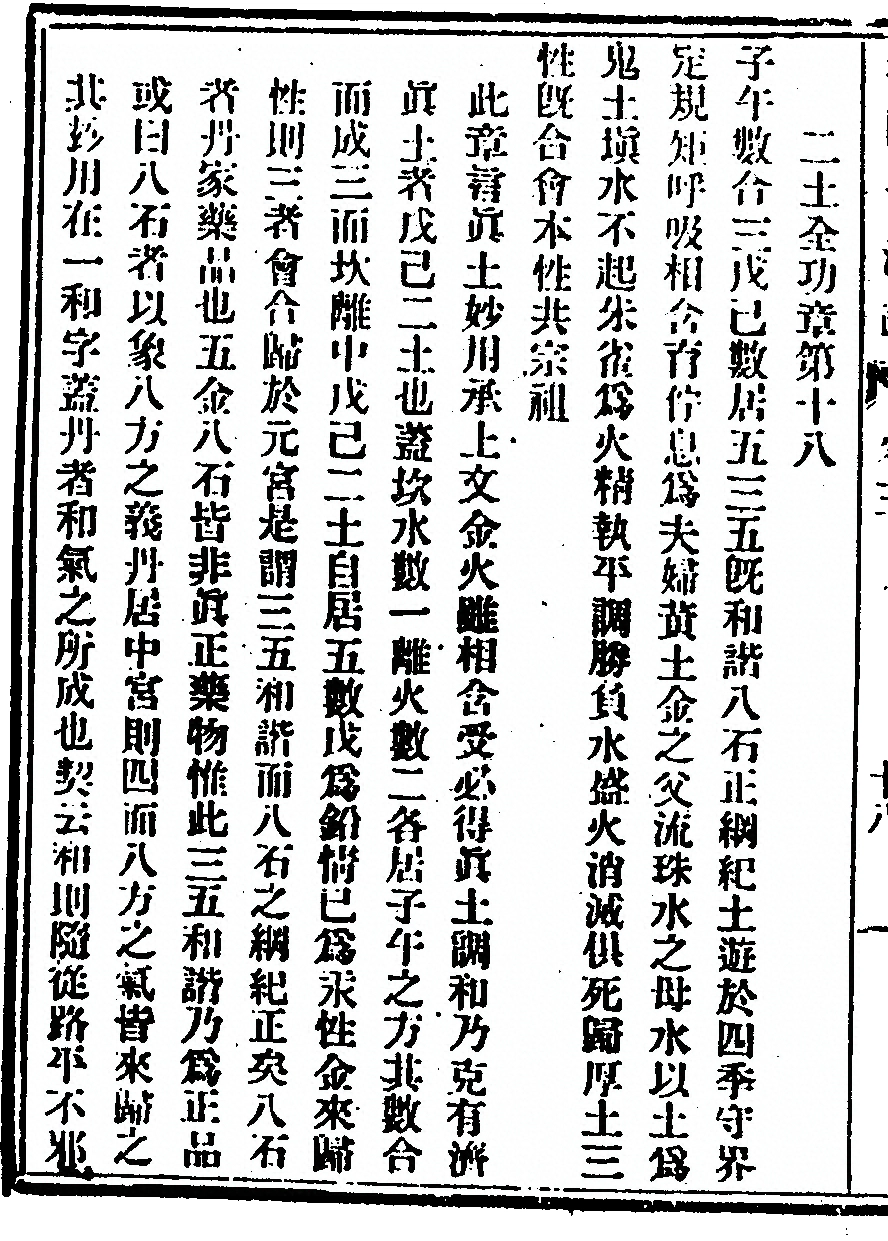 二土全功章第十八
子午數合三戊己數居五三五旣和諧八石正綱紀土遊於四季守界
定規矩呼吸相含育佇息爲夫婦黃土金之父流珠水之母水以土爲
鬼土塡水不起朱雀爲火精執平調勝負水盛火消滅俱死歸厚土三
性旣合會本性共宗祖
此章言眞土妙用承上文金火雖相含受必得眞土調和乃克有濟
眞土者戊己二土也蓋坎水數一離火數二各居子午之方其數合
而成三而坎離中戊己二土自居五數戊爲鉛情己爲汞性金來歸
性則三者會合歸於元宮是謂三五和諧而八石之綱紀正矣八石
者丹家藥品也五金八石皆非眞正藥物惟此三五和諧乃爲正品
或曰八石者以象八方之義丹居中宮則四面八方之氣皆來歸之
其妙用在一和字蓋丹者和氣之所成也契云和則隨從路平不邪
十八